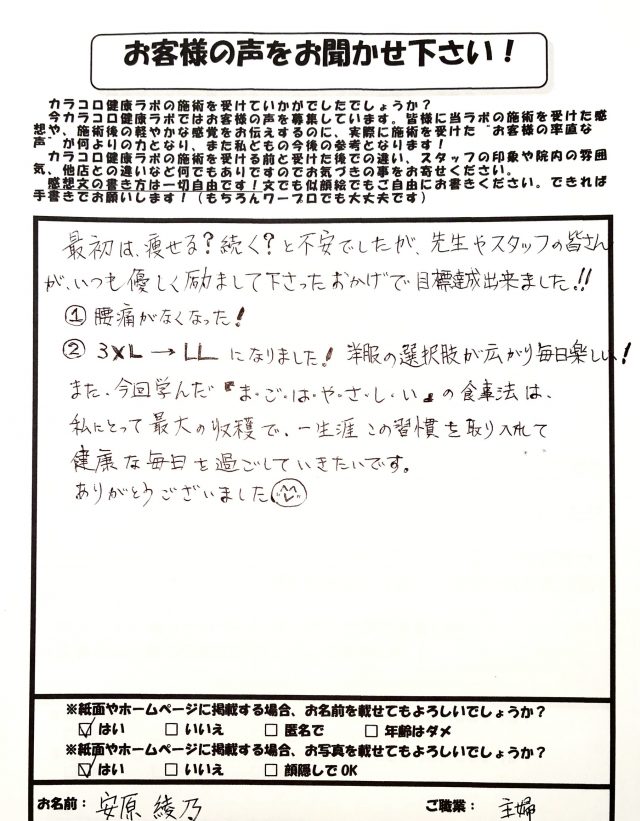 お客様の声をお聞かせ下さい！
カラコロ健康ラボの施術を受けていかがでしたでしょうか？
今カラコロ健康ラボではお客様の声を募集しています。皆様に当ラボの施術を受けた感
想や、施術後の軽やかな感覚をお伝えするのに、実際に施術を受けた“お客様の率直な
声”が何よりの力となり、また私どもの今後の参考となります！
カラコロ健康ラボの施術を受ける前と受けた後での違い、スタッフの印象や院内の雰囲
気、他店との違いなど何でもありですのでお気づきの事をお寄せください。
感想文の書き方は一切自由です！文でも似顔絵でもご自由にお書きください。できれば
手書きでお願いします！（もちろんワープロでも大丈夫です）
最初は、痩せる？続く？と不安でしたが、先生やスタッフの皆さん
が、いつも優しく励まして下さったおかげで目標達成出来ました!!
① 腰痛がなくなった！
② 3XL → LL になりました！ 洋服の選択肢が広がり毎日楽しい！
また、今回学んだ『ま・ご・は・や・さ・し・い』の食事法は、
私にとって最大の収穫で、一生涯この習慣を取り入れて
健康な毎日を過ごしていきたいです。
ありがとうございました
※紙面やホームページに掲載する場合、お名前を載せてもよろしいでしょうか？
☑ はい □ いいえ □ 匿名で □ 年齢はダメ
※紙面やホームページに掲載する場合、お写真を載せてもよろしいでしょうか？
☑ はい □ いいえ □ 顔隠しでOK
お名前： 安原 綾乃 ご職業： 主婦